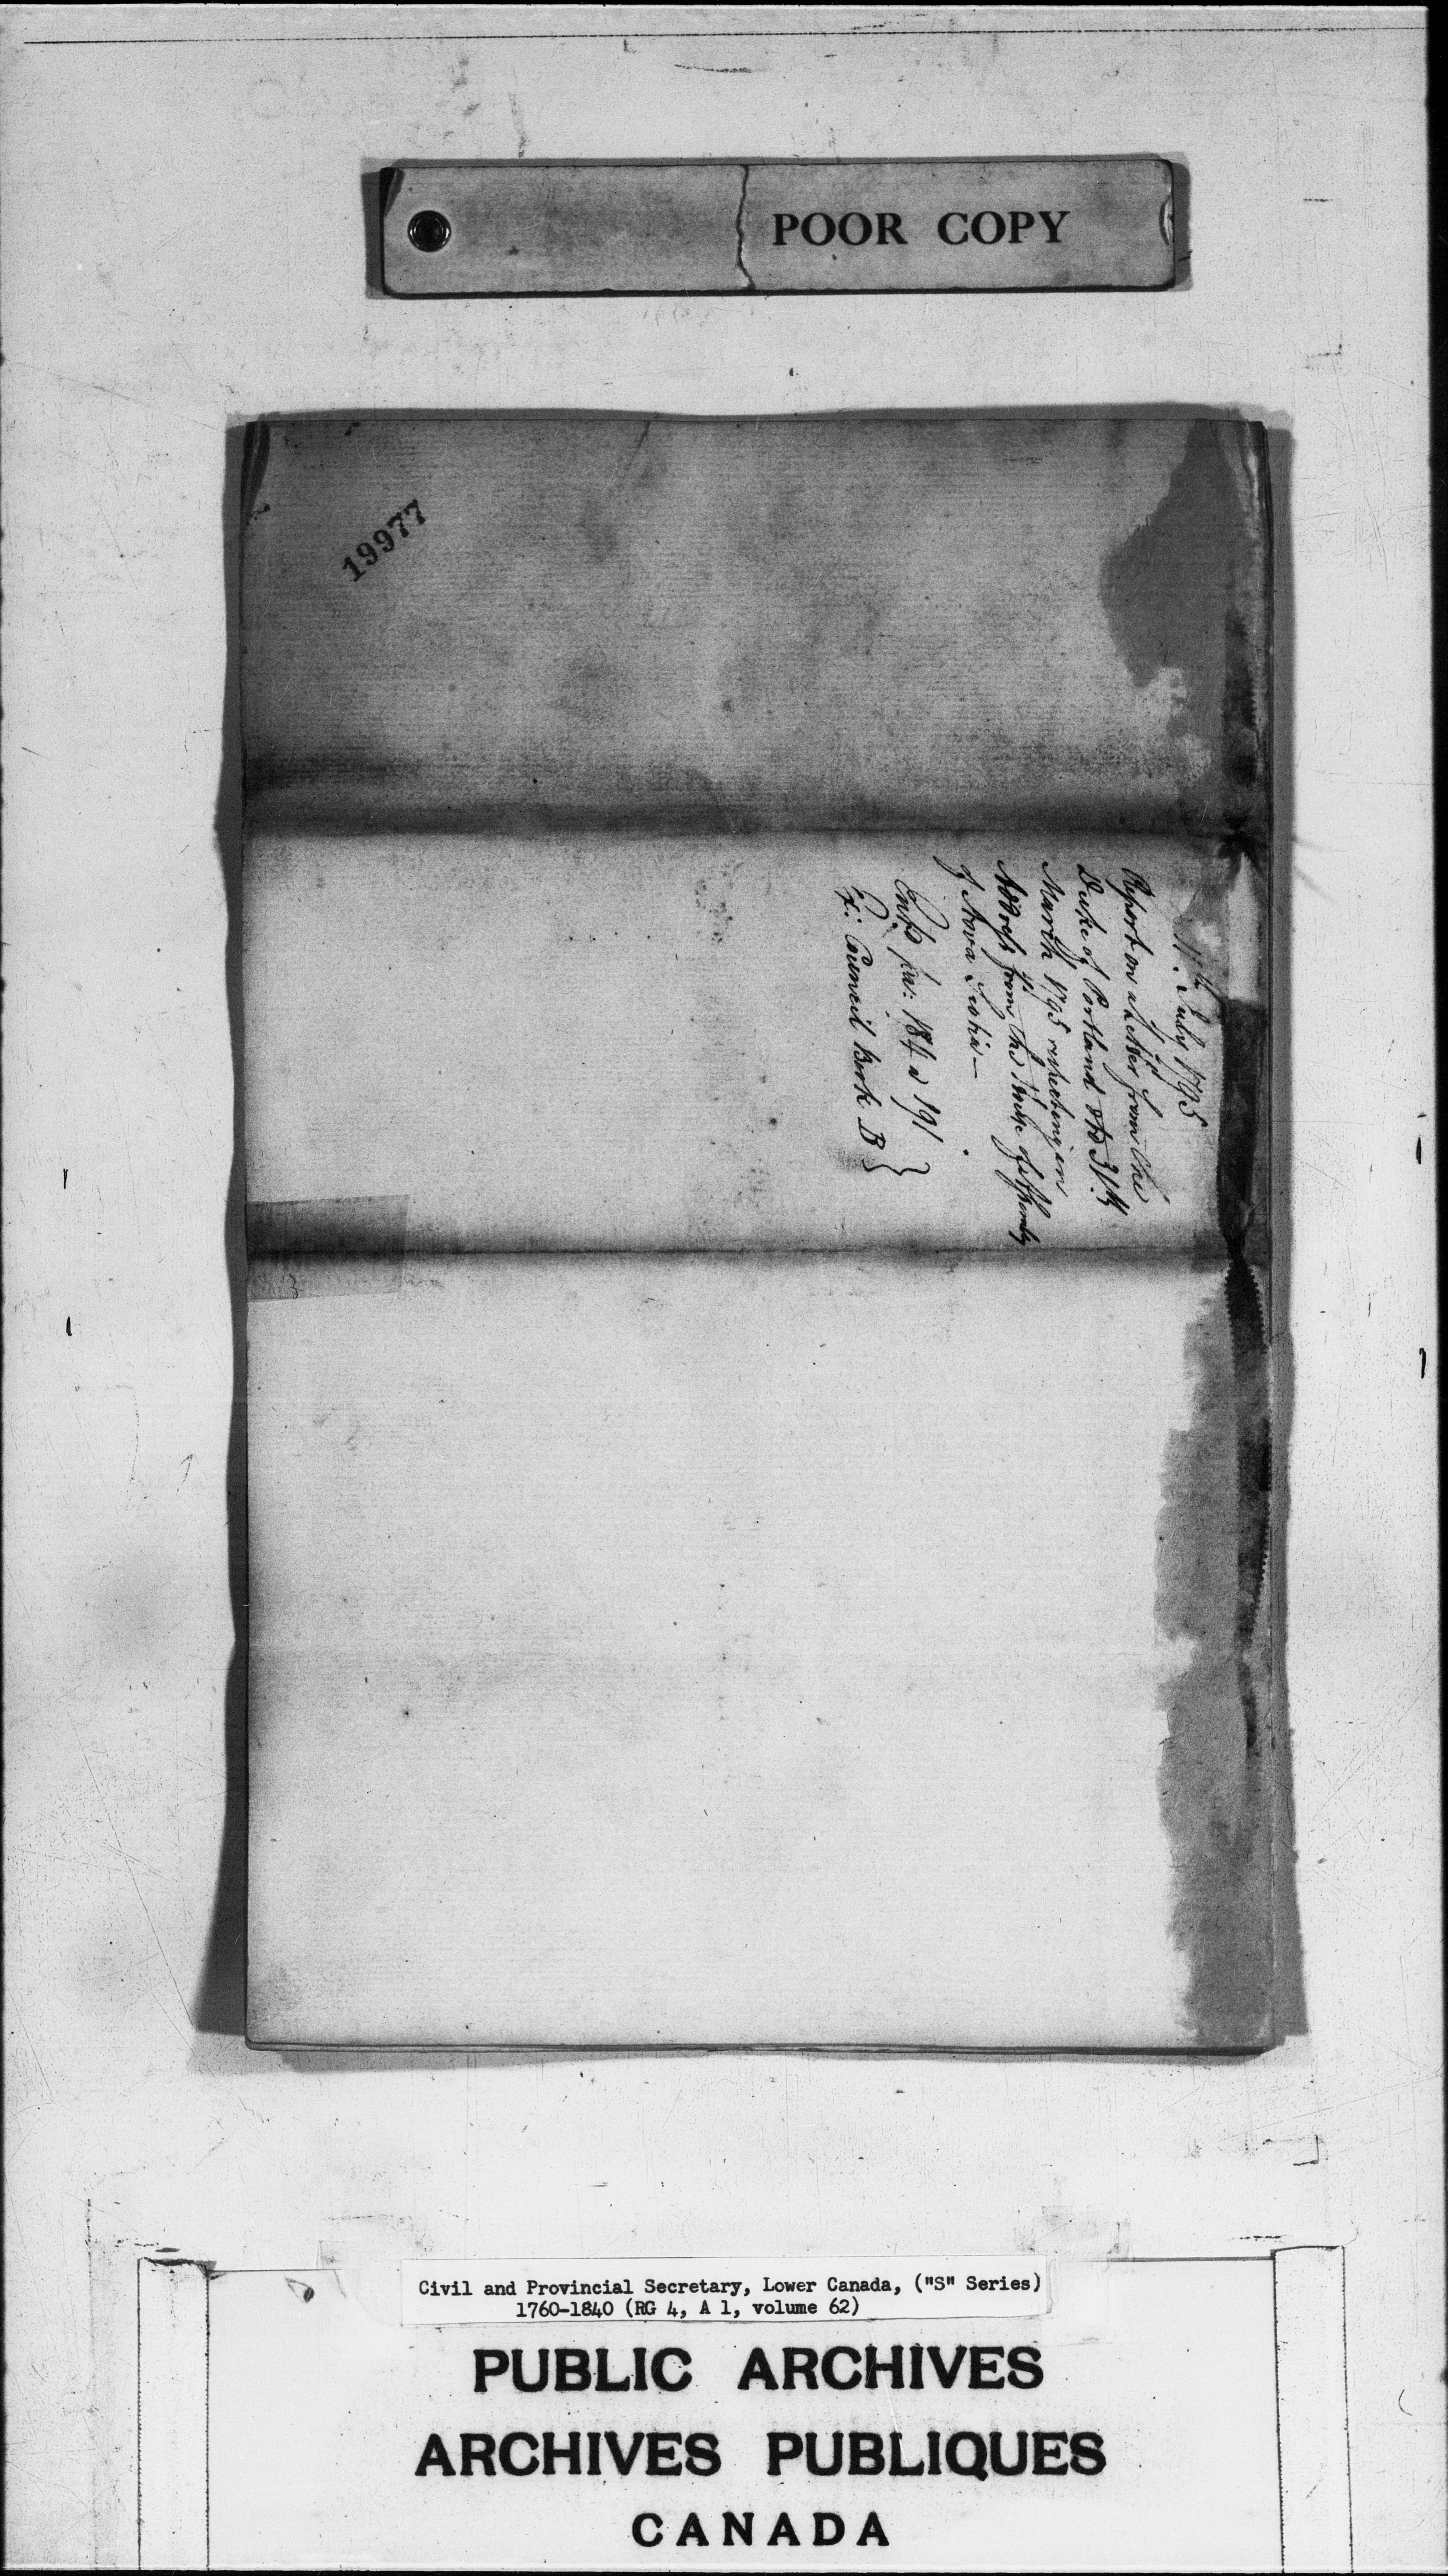 POOR COPY
19977
11th July 1795
Report on a Letter from the
Duke of Portland dto 31st
March 1795 respecting an
Address from the House of Assembly
of Nova Scotia —
Entd pa: 184 a 191 }
L: Council Book B }
3
Civil and Provincial Secretary, Lower Canada, ("S" Series)
1760-1840 (RG 4, A 1, volume 62)
PUBLIC ARCHIVES
ARCHIVES PUBLIQUES
CANADA